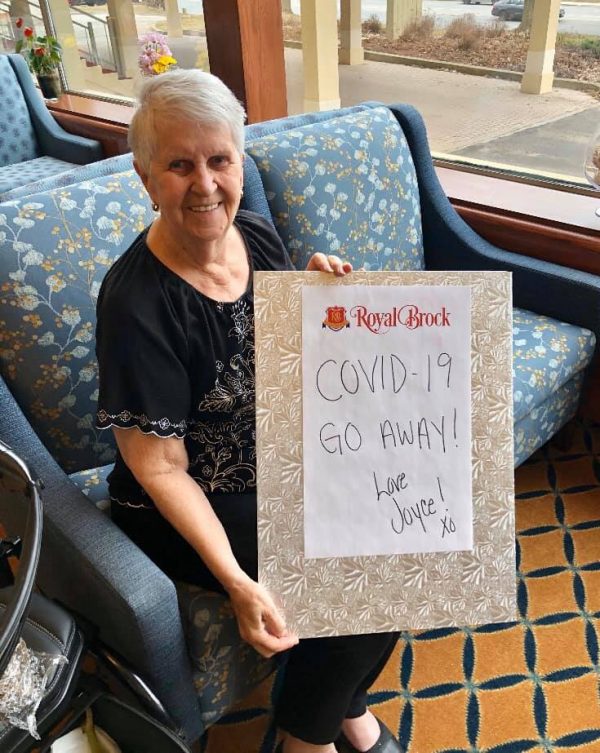 Royal Brock
COVID-19
GO AWAY!
Love
Joyce!
xo